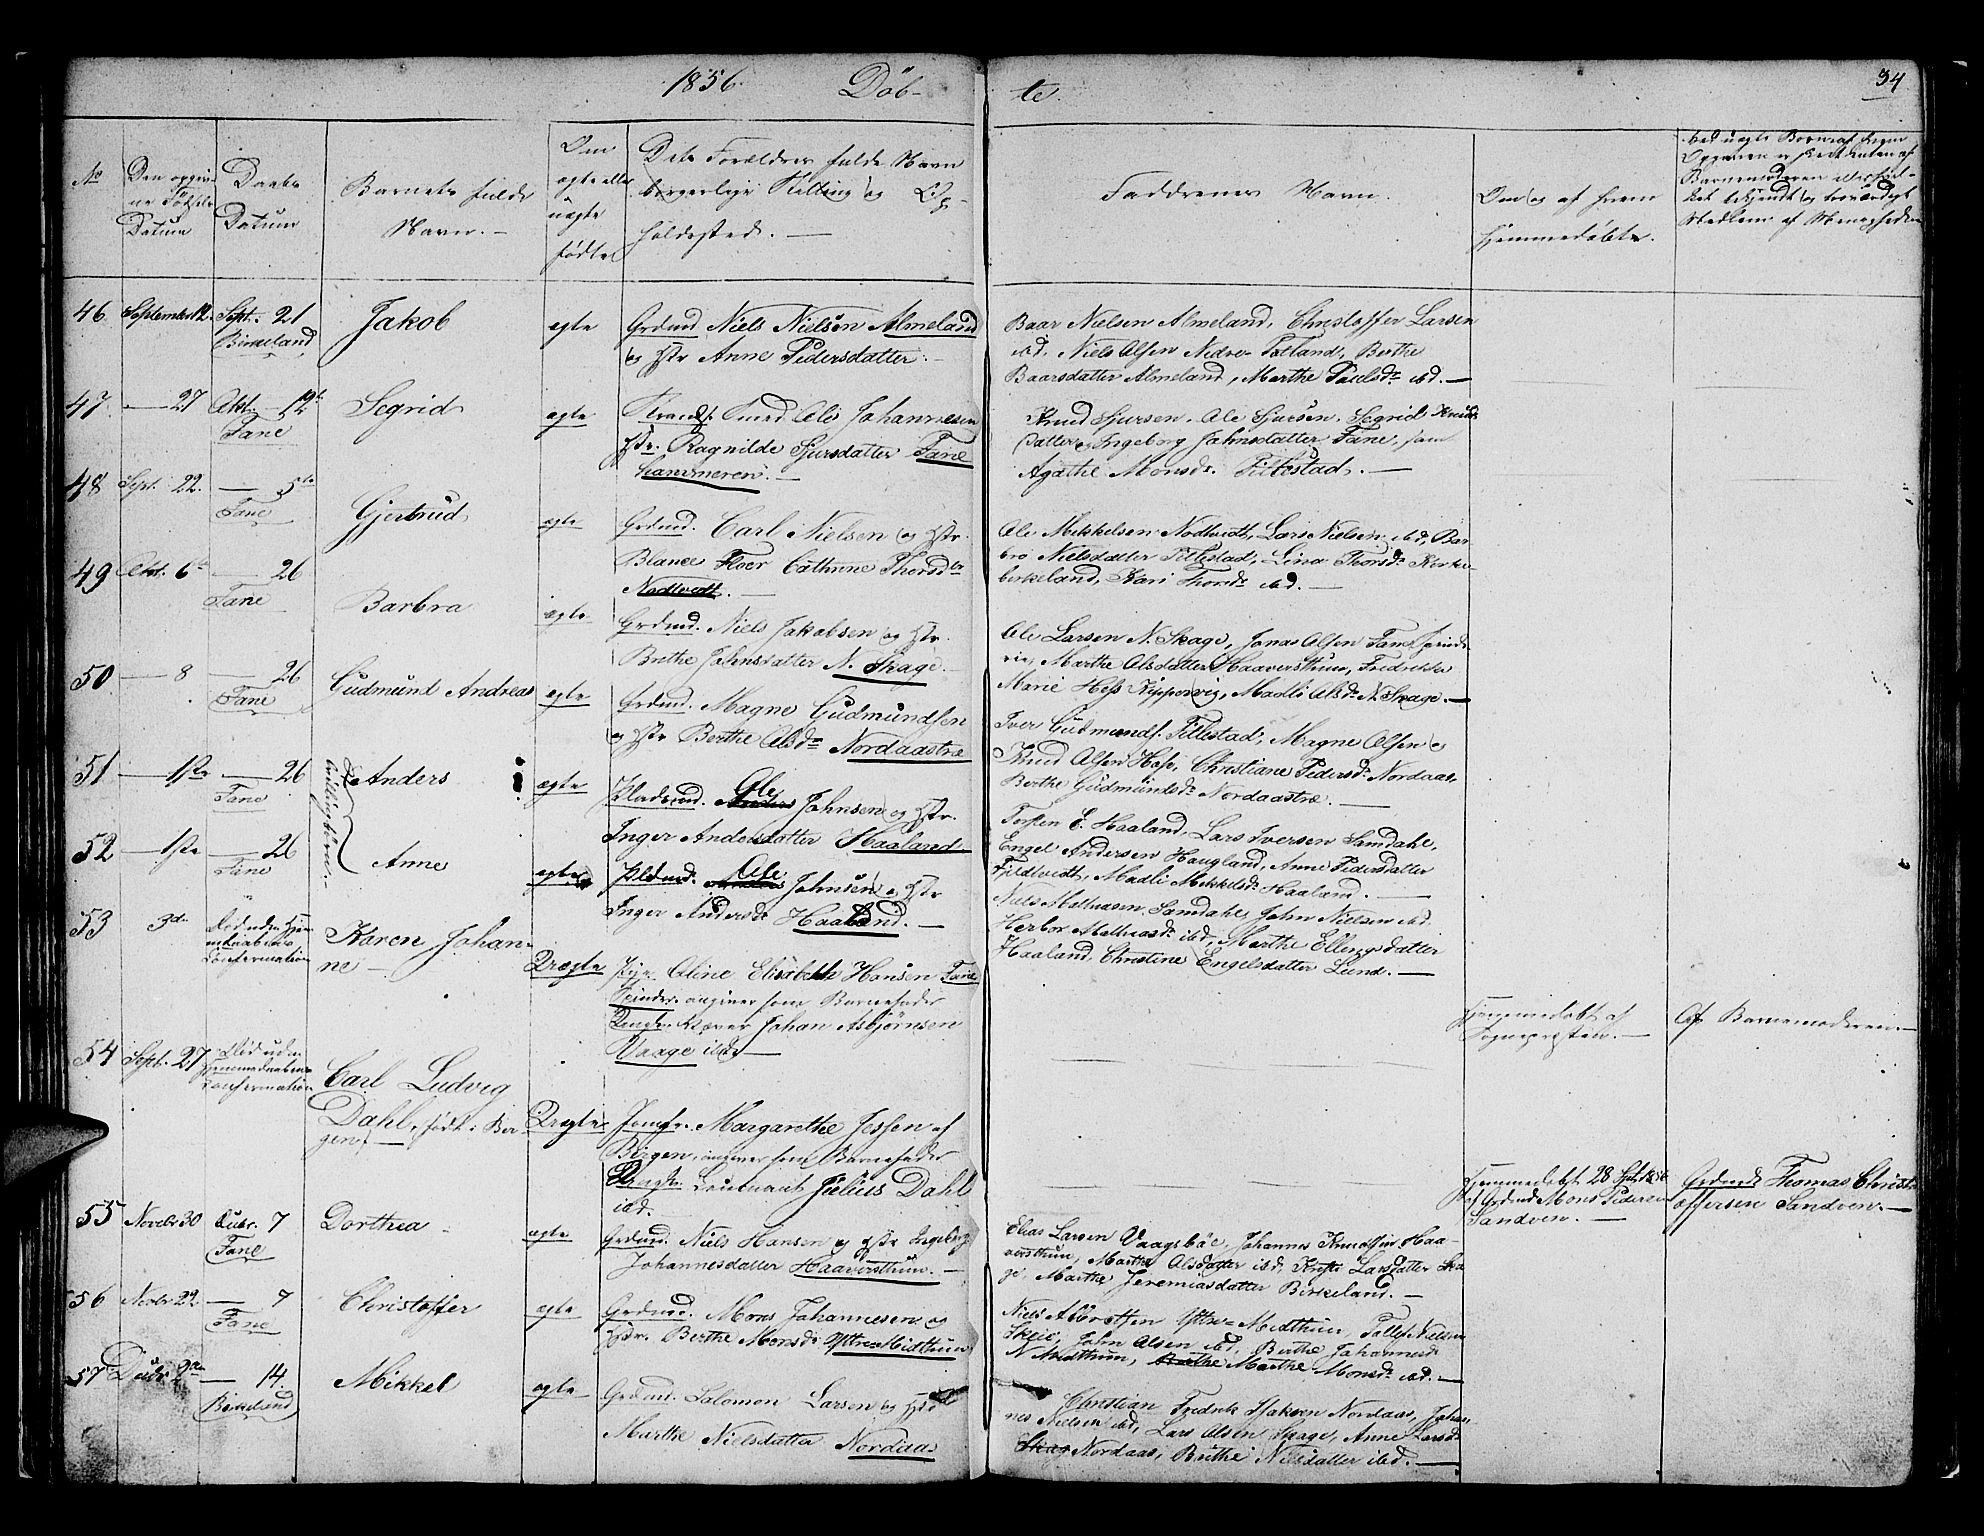 1856. Döb-
te.
34
No
Den opgiv-
ne Födsels
Datum
Daabs
Datum
Barnets fulde
Navn. —
Om
ægte eller
uægte
födte
Dets Forældres fulde Navn
borgerlige Stilling og Op-
holdssted. —
Faddernes Navn.
Om og af hvem
hjemmedöbt.
46 September 12. Sept. 21
Birkeland
Jakob
ægte
Grdmd Niels Nielsen Almeland
og Hstr Anne Pedersdatter. —
Baar Nielsen Almeland, Christoffer Larsen
ibd, Niels Olsen Nedre-Tatland, Berthe
Baarsdatter Almeland, Marthe Poulsdr ibd. —
47. — 27 Okt. — 12te
Fane
Segrid
ægte
Ole Johannesen
Hstr. Ragnilde Sjursdatter Fane
hammeren. —
Knud Sjursen, Ole Sjursen, Segrid Knuds
datter, Ingeborg Johnsdatter Fane, samt
Agathe Monsdr Titlestad. —
48 Sept. 22. — 5te
Fane
Gjertrud
ægte
Grdmd. Carl Nielsen og Hstr.
Blance Floer Cathrine Thorsdtr
Nordtvedt. —
Ole Mikkelsen Nodtvedt, Lars Nielsen ibd, Bar-
bro Nielsdatter Titlestad, Lina Thorsdr Kirke-
birkeland, Kari Thorsdr ibd. —
49 Okt. 6te — 26
Fane
Barbra
ægte
Grdmd. Niels Jakobsen og Hstr.
Brithe Johnsdatter N. Skage. —
Ole Larsen N. Skage, Jonas Olsen Fane
Marthe Olsdatter Haaversthun, Fredrikke
Marie Hess Kippervig, Madli Olsdr N. Skage. —
50 — 8 — 26
Fane
Gudmund Andreas
ægte
Grdmd. Magne Gudmundsen
og Hstr Berthe Olsdr Nordaastræ
Iver Gudmunds. Titlestad, Magne Olsen og
Knud Olsen Hop, Christiane Pedersdr Nordaas,
Berthe Gudmundsdr Nordaastræ. —
51 — 1ste — 26
Fane
Tvillingbörn.
Anders
ægte
Pladsmd. Ole Johnsen og Hstr.
Inger Andersdatter Haaland
Torsten E. Haaland, Lars Iversen Samdahl,
Engel Andersen Haugland, Anne Pedersdatter
Fjeldtvedt, Madli Mikkelsdr Haaland. —
52 — 1ste — 26
Fane
Anne
ægte
Pldmd. Ole Johnsen og Hstr
Inger Andersdr Haaland. —
Niels Mathiasen Samdahl, John Nielsen ibd.
Herbor Mathiasdr ibd, Marthe Ellingsdatter
Haaland, Christine Engelsdatter Lund. —
53 3die Död uden Hjem-
medaabens
Confermation
Karen Johan-
ne —
Uægte
Pige Oline Elisabeth Hansen Fane
angiver som Barnefader
Ungk. Johan Asbjörnsen
Vaage ibd. —
Hjemmedöbt af
Sognepresten. —
Af Barnemoderen. —
54 Sept. 27 Död uden
Hjemmedaabens
Confermation
Carl Ludvig
Dahl, födt i Ber-
gen. —
Uægte
Jomfr. Margarethe Jessen af
Bergen, angiver som Barnefader
Ungk. Leutnant Julius Dahl
ibd.
Hjemmedöbt 28 Sept 1856
af Grdmd Mons Pedersen
Sandven. —
Grdmd Thomas Christ-
offersen Sandven. —
55 Novbr 30 Decbr. 7
Fane
Dorthea
ægte
Grdmd. Niels Hansen og Hstr Ingeborg
Johannesdatter Haaversthun. —
Elias Larsen Vaagsböe, Johannes Knudsen Haa-
versthun, Marthe Olsdatter ibd, Kristi Larsdatter Ska-
ge, Marthe Jeremiasdatter Birkeland. —
56 Novbr 22 — 7
Fane
Christoffer
ægte
Grdmd. Mons Johannesen og
Hstr. Berthe Monsdr Yttre Midthun
Niels Albrectsen Yttre-Midthun, Tollef Nielsen
Skeie, John Olsen ibd, Berthe Johannesdr
N Midthun, Marthe Monsdr ibd. —
57 Decbr 2den — 14.
Birkeland
Mikkel
ægte
Grdmd. Salomon Larsen og Hstr
Marthe Nielsdatter Nordaas
Christian Fredrik Hakven Nordaas, Johan-
nes Nielsen ibd, Lars Olsen Skage, Anne Larsdr
Nordaas, Brithe Nielsdatter ibd. —